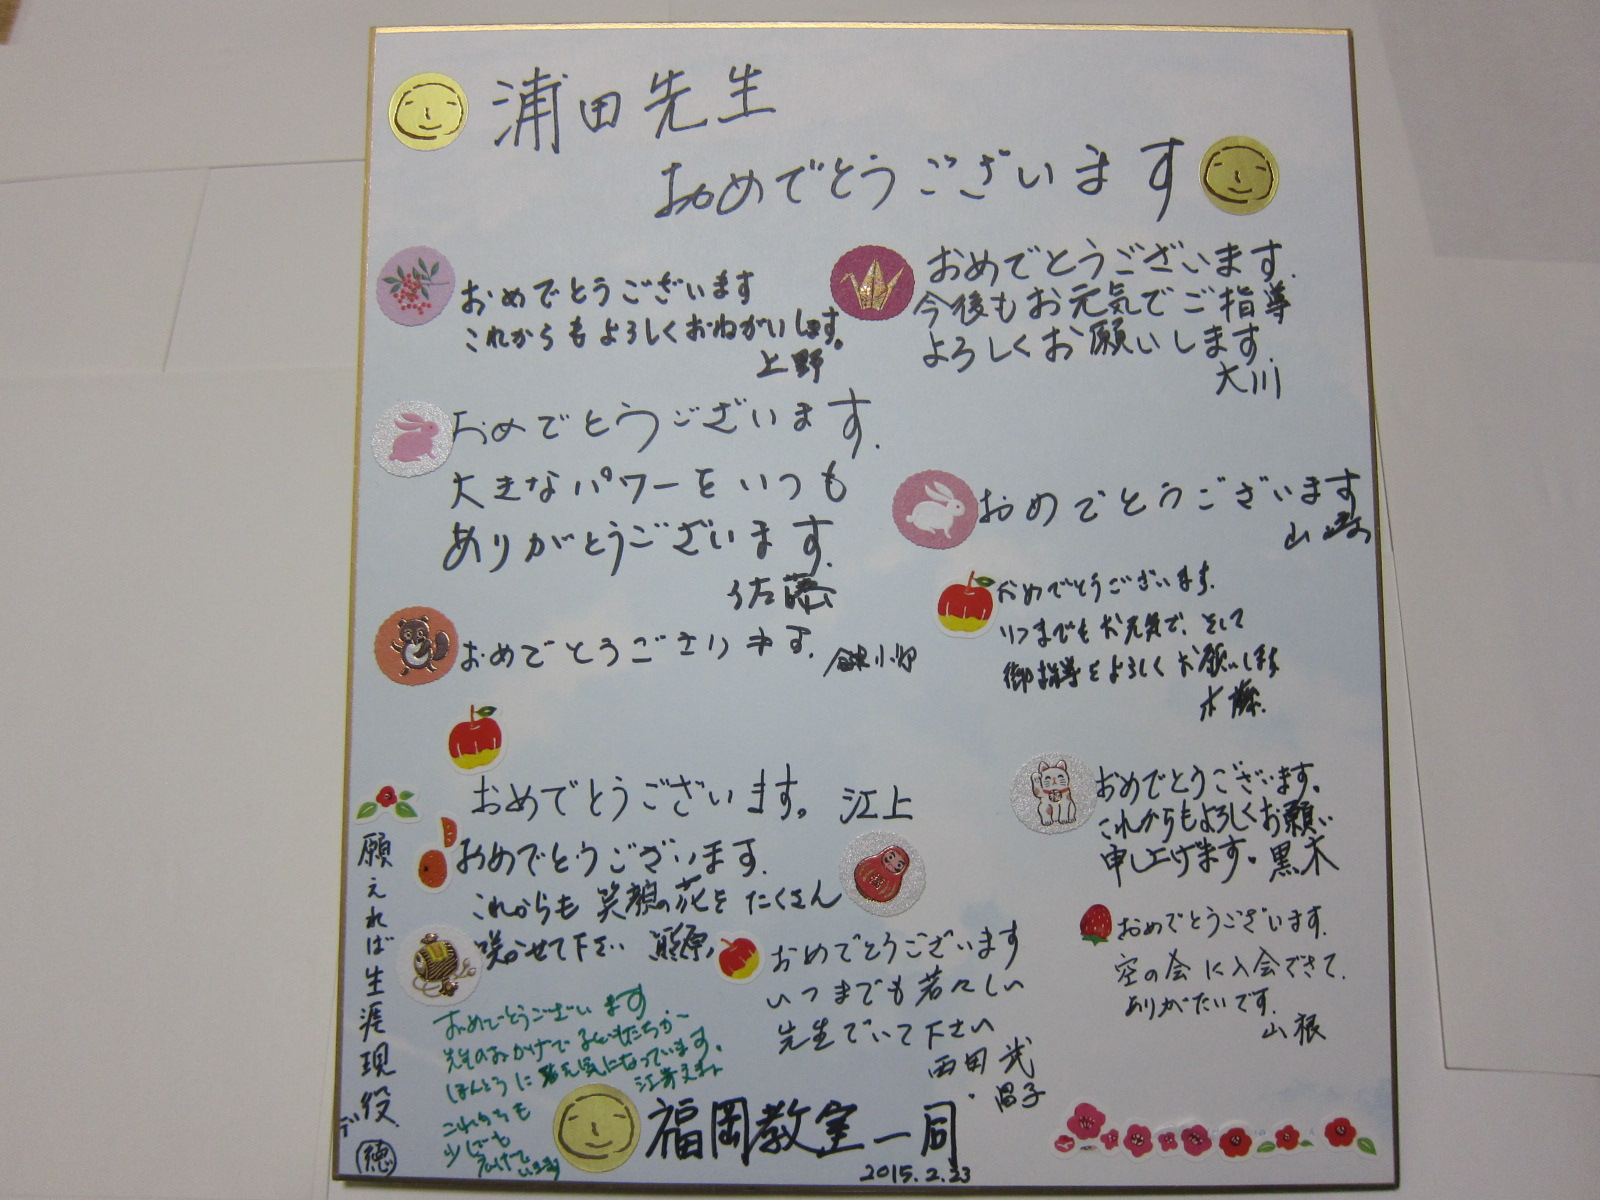 浦田先生
おめでとうございます
おめでとうございます
これからもよろしくおねがいします。
上野
おめでとうございます.
今後もお元気でご指導
よろしくお願いします.
大川
おめでとうございます.
大きなパワーをいつも
ありがとうございます.
佐藤
おめでとうございます
山崎
おめでとうございます.
いつまでもお元気で、そして
御指導をよろしくお願いします
木藤.
おめでとうござります.
おめでとうございます。江上
おめでとうございます。
これからもよろしくお願い
申し上げます。黒木
おめでとうございます.
これからも笑顔の花をたくさん
咲かせて下さい
おめでとうございます
いつまでも若々しい
先生でいて下さい
西田 武
・昌子
おめでとうございます.
空の会に入会できて.
ありがたいです.
山根
願えれば生涯現役.
デ
徳
おめでとうございます
先生のおかげで子どもたちが
ほんとうに元気になっています。
これからも
少しでも
福岡教室一同
2015.2.23